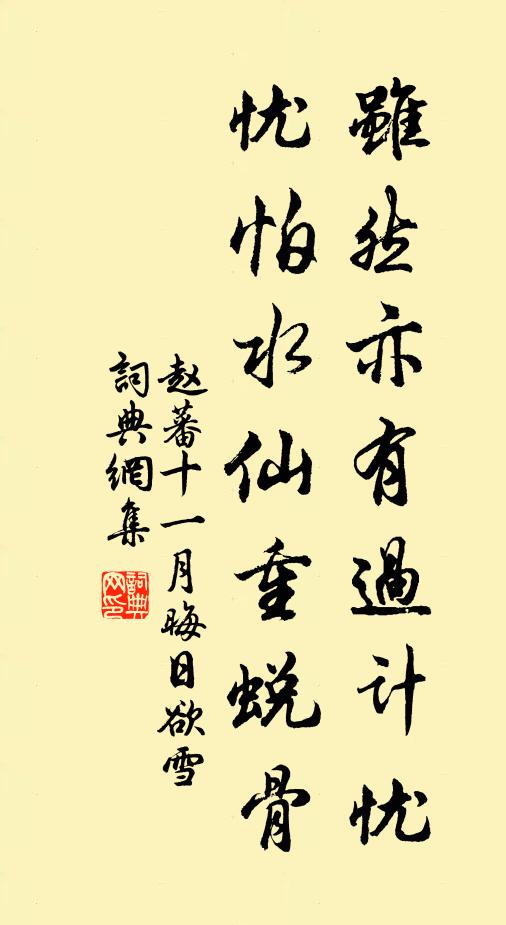 雖然亦有過计忧
忧怕水仙重蜕骨
赵蕃十一月晦日欲雪
詞典網集
詞典網印